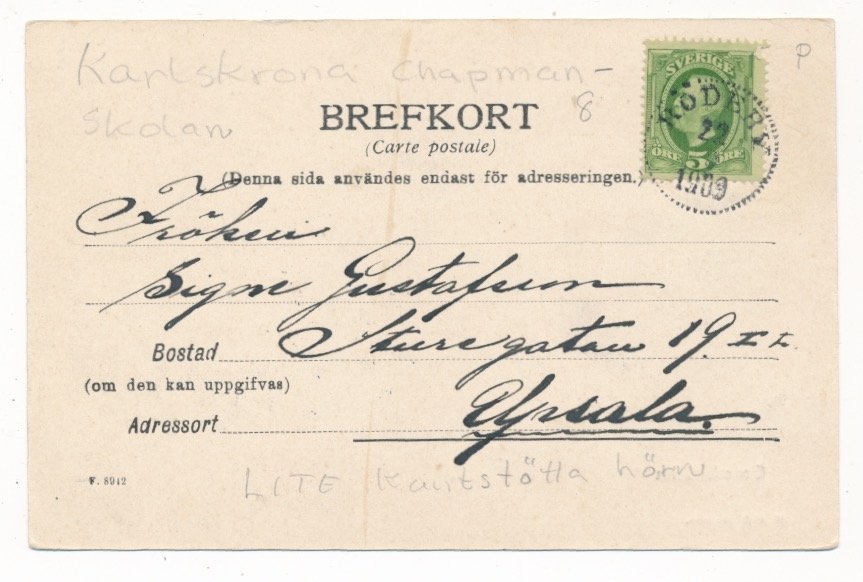 Karlskrona Chapman-
skolan
8
P
BREFKORT
(Carte postale)
(Denna sida användes endast för adresseringen.)
SVERIGE
5
ÖRE ÖRE
RÖDEBY
23
1909
Fröken
Signe Gustafsson
Bostad Sturegatan 19. II.
(om den kan uppgifvas)
Adressort Upsala.
F. 8942
LITE Kantstötta hörn